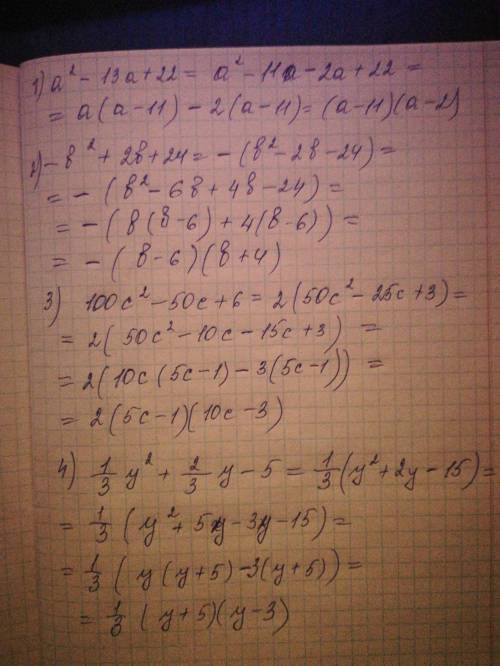 1) a² - 13a + 22 = a² - 11a - 2a + 22 =
= a(a - 11) - 2(a - 11) = (a - 11)(a - 2)
2) -в² + 2в + 24 = -(в² - 2в - 24) =
= -(в² - 6в + 4в - 24) =
= -(в(в - 6) + 4(в - 6)) =
= -(в - 6)(в + 4)
3) 100c² - 50c + 6 = 2(50c² - 25c + 3) =
= 2(50c² - 10c - 15c + 3) =
= 2(10c(5c - 1) - 3(5c - 1)) =
= 2(5c - 1)(10c - 3)
4) 1/3 y² + 2/3 y - 5 = 1/3 (y² + 2y - 15) =
= 1/3 (y² + 5y - 3y - 15) =
= 1/3 (y(y + 5) - 3(y + 5)) =
= 1/3 (y + 5)(y - 3)